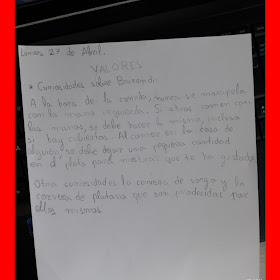 Lunes 27 de Abril.
VALORES
* Curiosidades sobre Burundi:
A la hora de la comida, nunca se manipula
con la mano izquierda. Si otros comen con
las manos, se debe hacer lo mismo, incluso
si hay cubiertos. Al comer en la casa de
alguien, se debe dejar una pequeña cantidad
en el plato para mostrar que te ha gustado.
Otra curiosidades la cerveza de sorgo y la
cerveza de platano que son producidas por
ellos mismos.